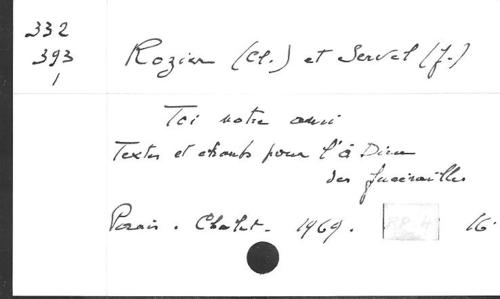 332
393
1
Rozier (Cl.) et Servel (J.)
Toi notre ami
Textes et chants pour l'à Dieu
des funérailles
Paris. Chalet. 1969. 16°